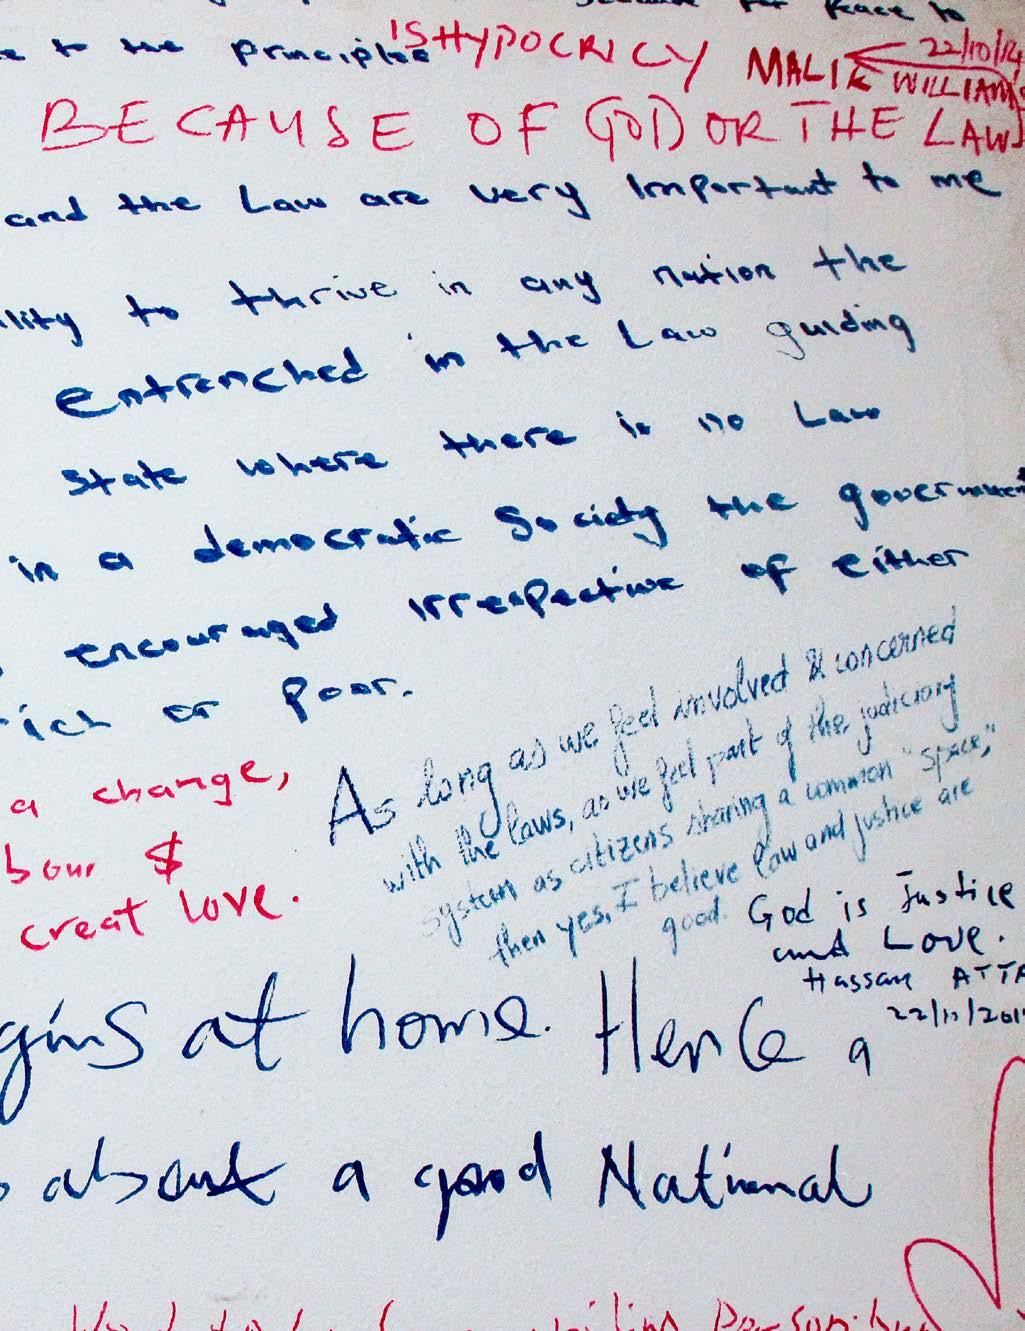 for Peace to
to the principles
IS HYPOCRICY MALIK WILLIAMS
22/10/14
BECAUSE OF GOD OR THE LAW
and the Law are very Important to me
to thrive in any nation the
entrenched in the Law guiding
State where there is no Law
in a democratic Society the government
encouraged irrespective of either
or Poor.
a change,
$
creat love.
As long as we feel involved & concerned
with the laws, as we feel part of the judiciary
system as citizens sharing a common "space,"
then yes, I believe law and justice are
good.
God is Justice
and Love.
Hassan ATTA
22/11/201
at home. Hence a
a good National